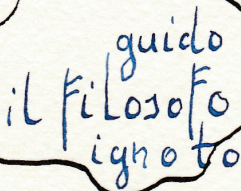 guido
il filosofo
ignoto